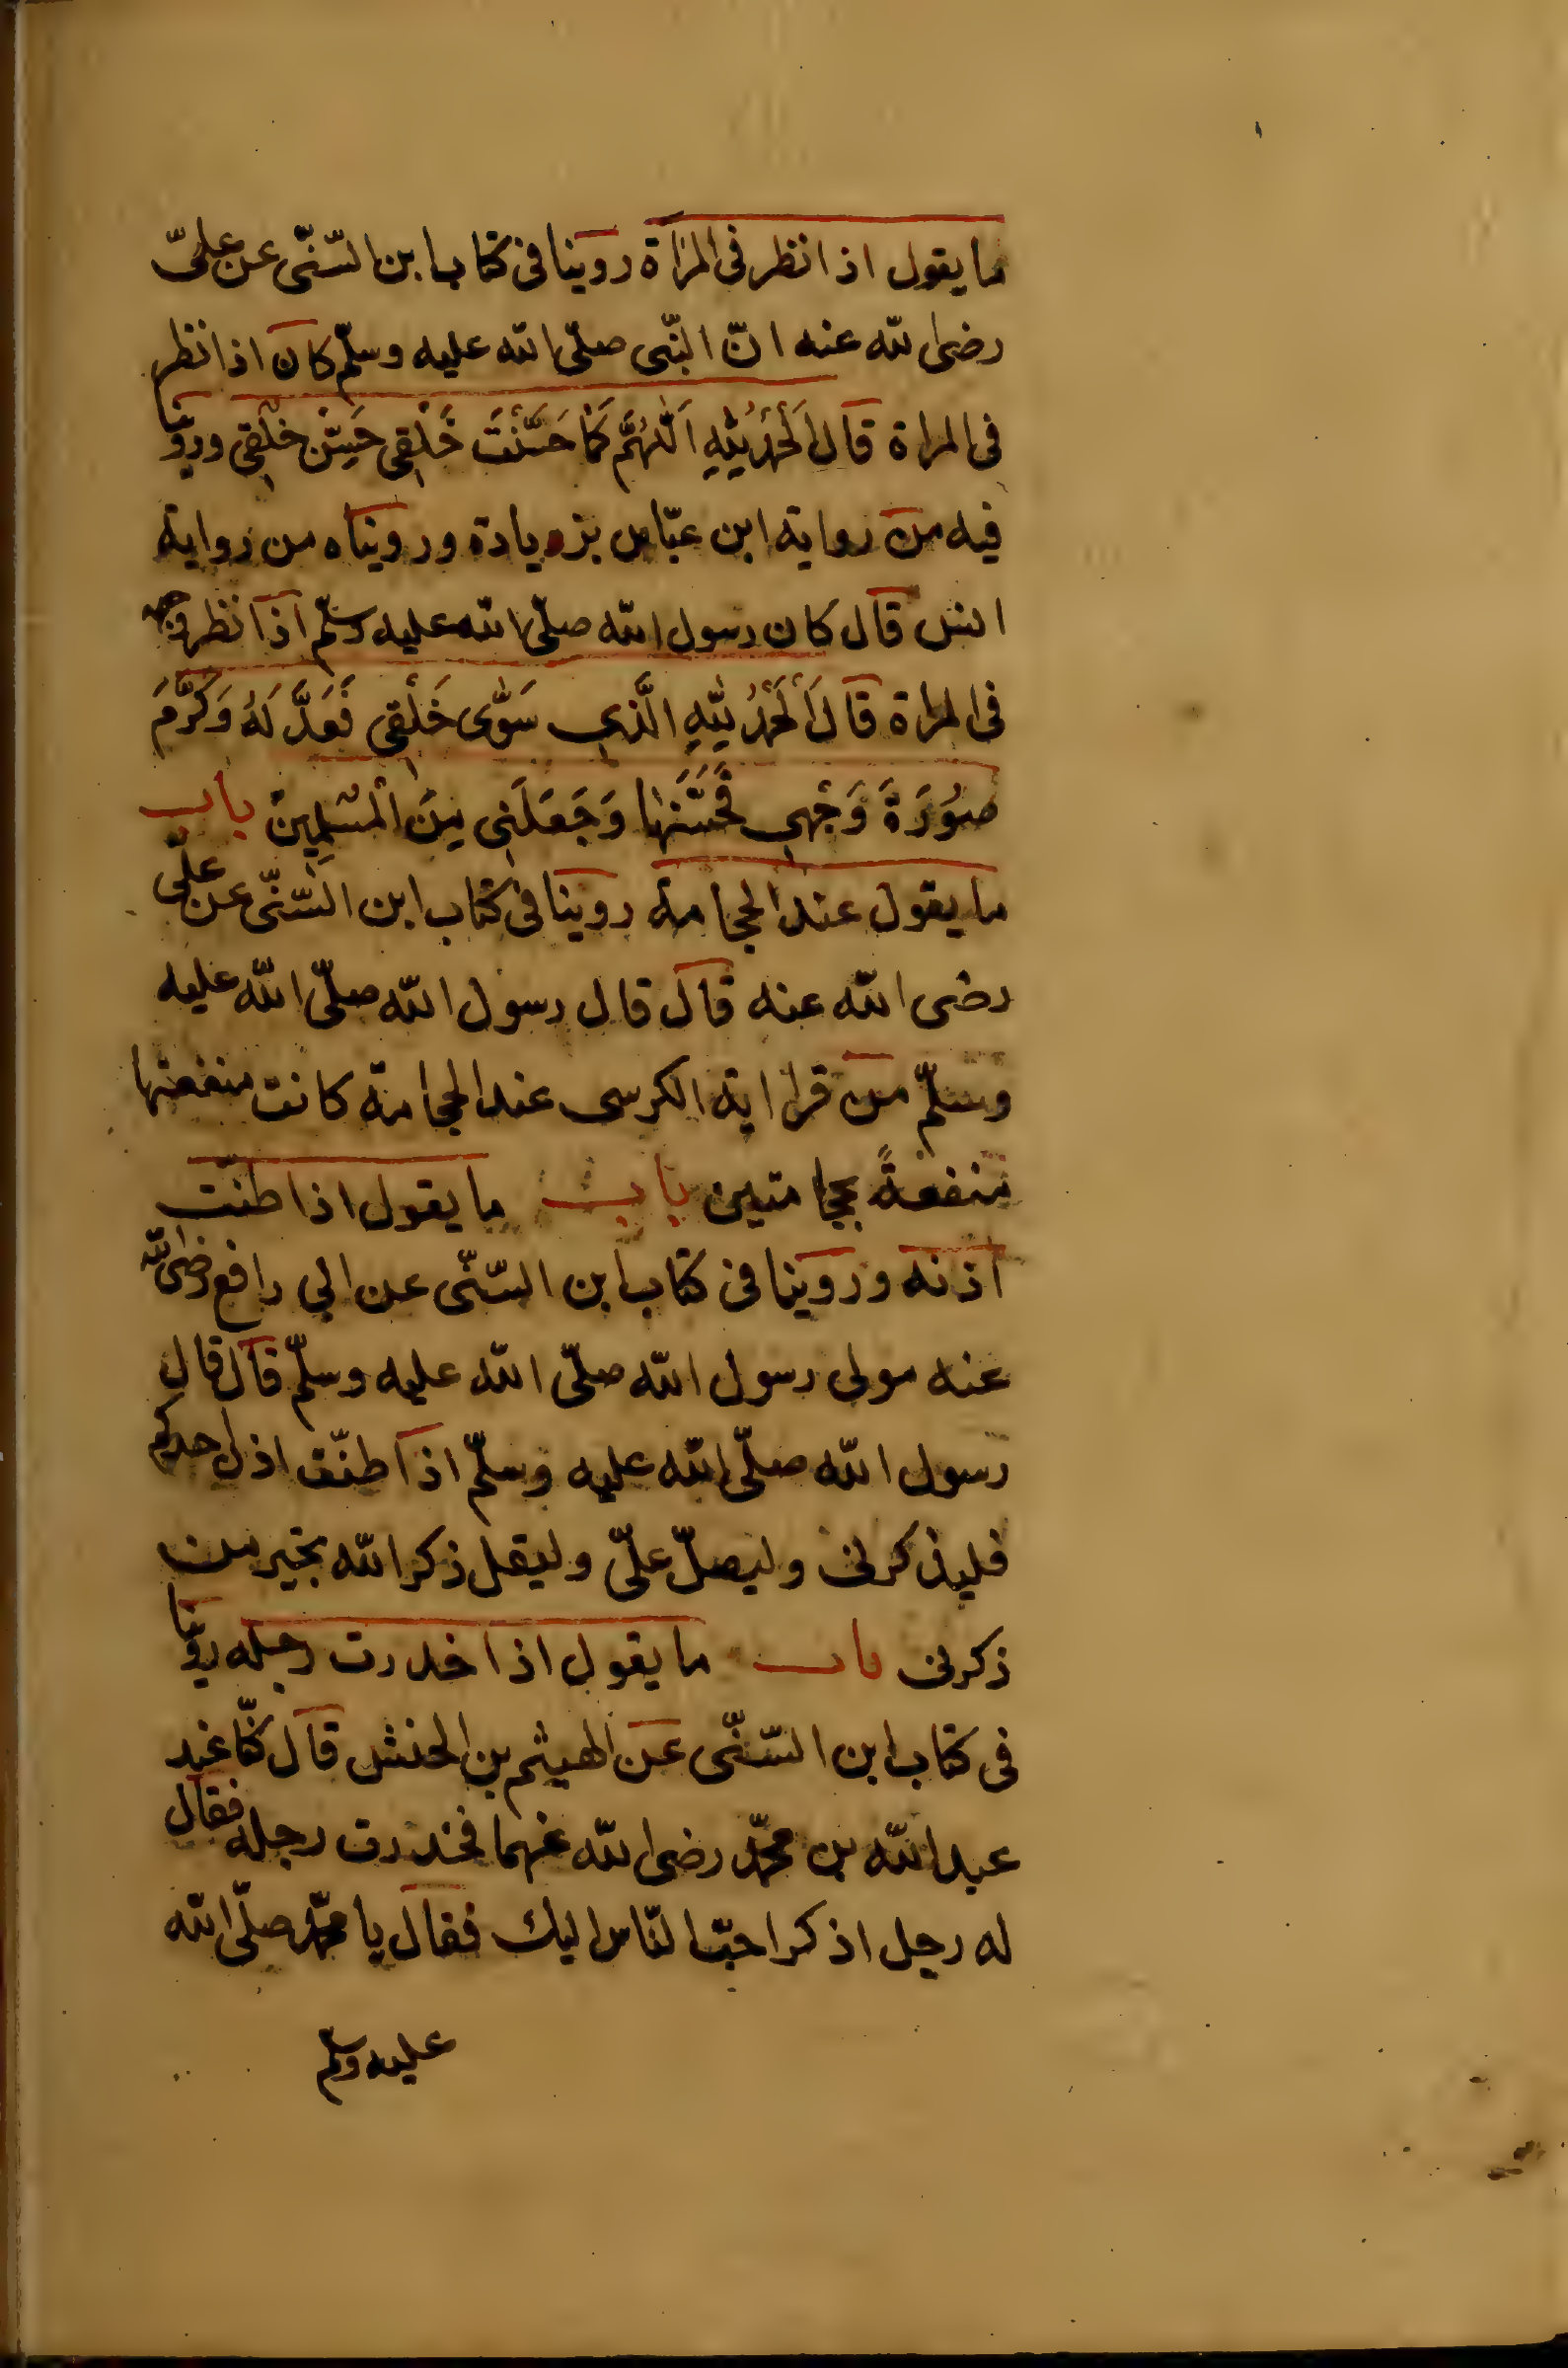 ما يقول اذا نظر فى المراة روينا فى كتاب ابن السّنّى عن علىّ
رضى الله عنه انّ النّبى صلّى الله عليه وسلّم كان اذا نظر
فى المراة قال اَلْحَمْدُ لِلّٰهِ اَللّٰهُمَّ كَمَا حَسَّنْتَ خَلْقِى حَسِّنْ خُلْقِى وروينا
فيه من رواية ابن عبّاس بزيادة ورويناه من رواية
انس قال كان رسول الله صلّى الله عليه وسلّم اذا نظر وجهه
فى المراة قال اَلْحَمْدُ لِلّٰهِ الَّذِي سَوّٰى خَلْقِى فَعَدَّلَهُ وَكَرَّمَ
صُوْرَةَ وَجْهِي فَحَسَّنَهَا وَجَعَلَنِى مِنَ الْمُسْلِمِيْنَ باب
ما يقول عند الحجامة روينا فى كتاب ابن السّنّى عن علّى
رضى الله عنه قال قال رسول الله صلّى الله عليه
وسلّم من قرا اية الكرسى عند الحجامة كانت منفعتها
منفعةً حجامتين باب ما يقول اذا طنّت
اذنه وروينا فى كتاب ابن السّنّى عن ابى رافع رضى الله
عنه مولى رسول الله صلّى الله عليه وسلّم قال قال
رسول الله صلّى الله عليه وسلّم اذا طنّت اذن احدكم
فليذكرنى وليصلّ علّى وليقل ذكر الله بخير من
ذكرنى باب ما يقول اذا خدرت رجله روينا
فى كتاب ابن السّنّى عن الهيثم بن الحنش قال كنّا عند
عبد الله بن محمّد رضى الله عنهما فخدرت رجله فقال
له رجل اذكر احبّ النّاس اليك فقال يا محمّد صلّى الله
عليه وسلم